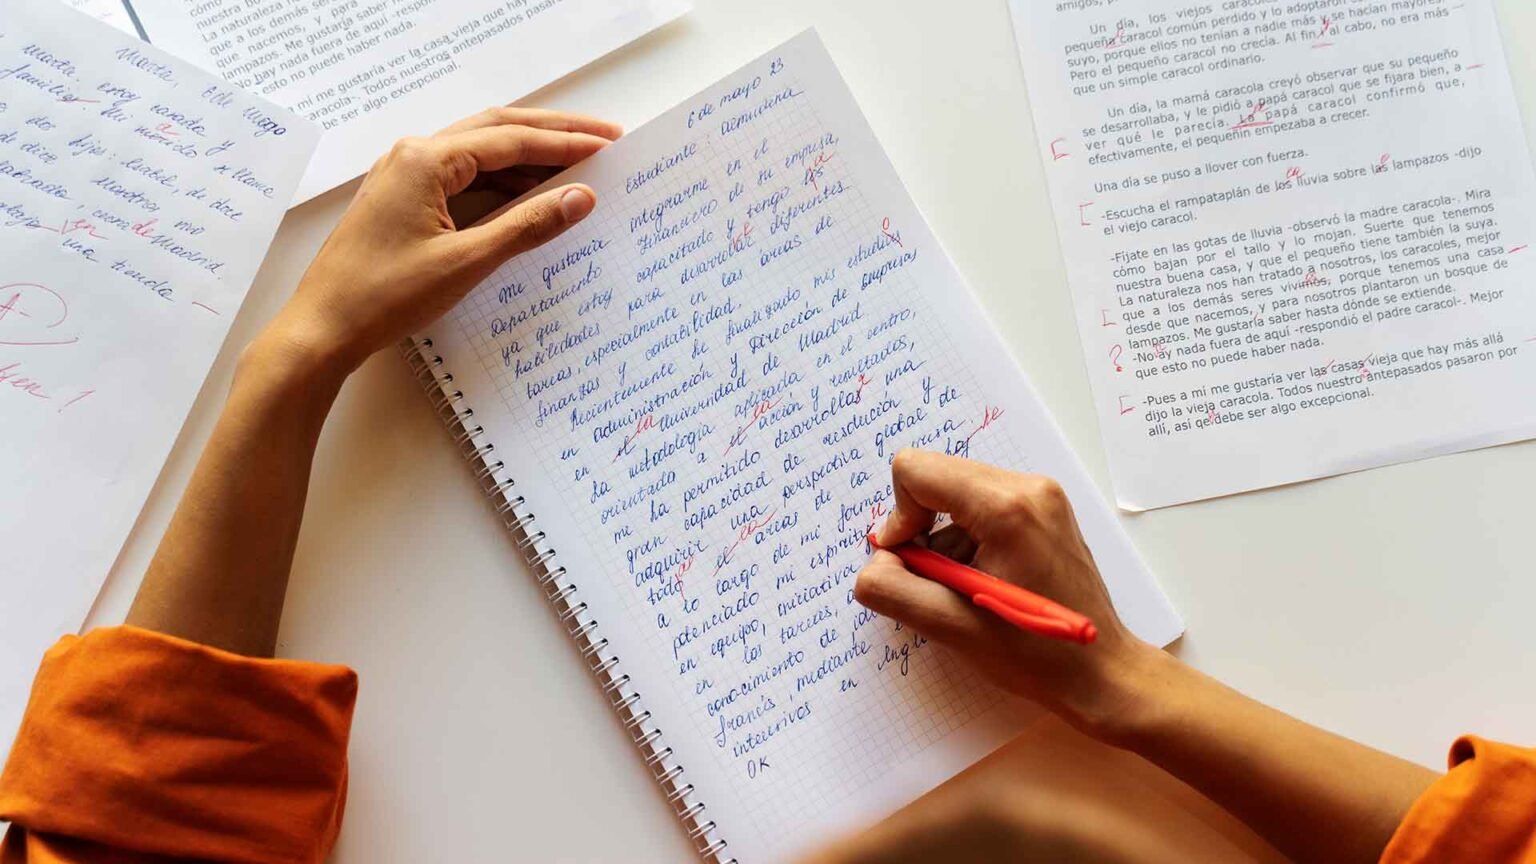 cómo
nuestra bu
La naturaleza n
que a los demás sere
que nacemos, y para
lampazos. Me gustaría saber ha
-No hay nada fuera de aquí -respon
esto no puede haber nada.
a mí me gustaría ver la casa vieja que hay
caracola-. Todos nuestros antepasados pasaron
be ser algo excepcional.
Marta, 6 de mayo
marta, estoy casada y
familia. Mi marido se llama
dos hijos:
de doce
nosotros, mi
de Madrid.
en una tienda
A-
6 de mayo 23
Estudiante: Almudena
Me gustaría integrarme en el
Departamento Financiero de su empresa,
ya que estoy capacitado y tengo los
habilidades para desarrollar diferentes
tareas, especialmente en las áreas de
finanzas y contabilidad.
Recientemente he finalizado mis estudias
en administración y Dirección de Empresas
en el la Universidad de Madrid
La metodología aplicada en el centro,
orientado a el la acción y resultados,
mi ha permitido desarrollar una
gran capacidad de resolución y
adquirir una perspectiva global de
todo el la areas de la empresa.
a lo largo de mi formac hoy he
potenciado mi espíritu
en equipo, iniciativa
en los tareas, a
conocimiento de idi
francés, mediante
intensivos en Ingl
OK
amigos, p
Un día, los viejos caraco
pequeña caracol común perdido y lo adoptaron
suyo, porque ellos no tenían a nadie más y se hacían mayores.
Pero el pequeño caracol no crecía. Al fin y al cabo, no era más
que un simple caracol ordinario.
Un día, la mamá caracola creyó observar que su pequeño
se desarrollaba, y le pidió a papá caracol que se fijara bien, a
ver qué le parecía. La papá caracol confirmó que,
efectivamente, el pequeñín empezaba a crecer.
Una día se puso a llover con fuerza.
-Escucha el rampataplán de los lluvia sobre las lampazos -dijo
el viejo caracol.
-Fíjate en las gotas de lluvia -observó la madre caracola-. Mira
cómo bajan por el tallo y lo mojan. Suerte que tenemos
nuestra buena casa, y que el pequeño tiene también la suya.
La naturaleza nos han tratado a nosotros, los caracoles, mejor
que a los demás seres vivimos, porque tenemos una casa
desde que nacemos, y para nosotros plantaron un bosque de
lampazos. Me gustaría saber hasta dónde se extiende.
-No ay nada fuera de aquí -respondió el padre caracol-. Mejor
que esto no puede haber nada.
-Pues a mí me gustaría ver las casas vieja que hay más allá
dijo la vieja caracola. Todos nuestro antepasados pasaron por
allí, así qe debe ser algo excepcional.